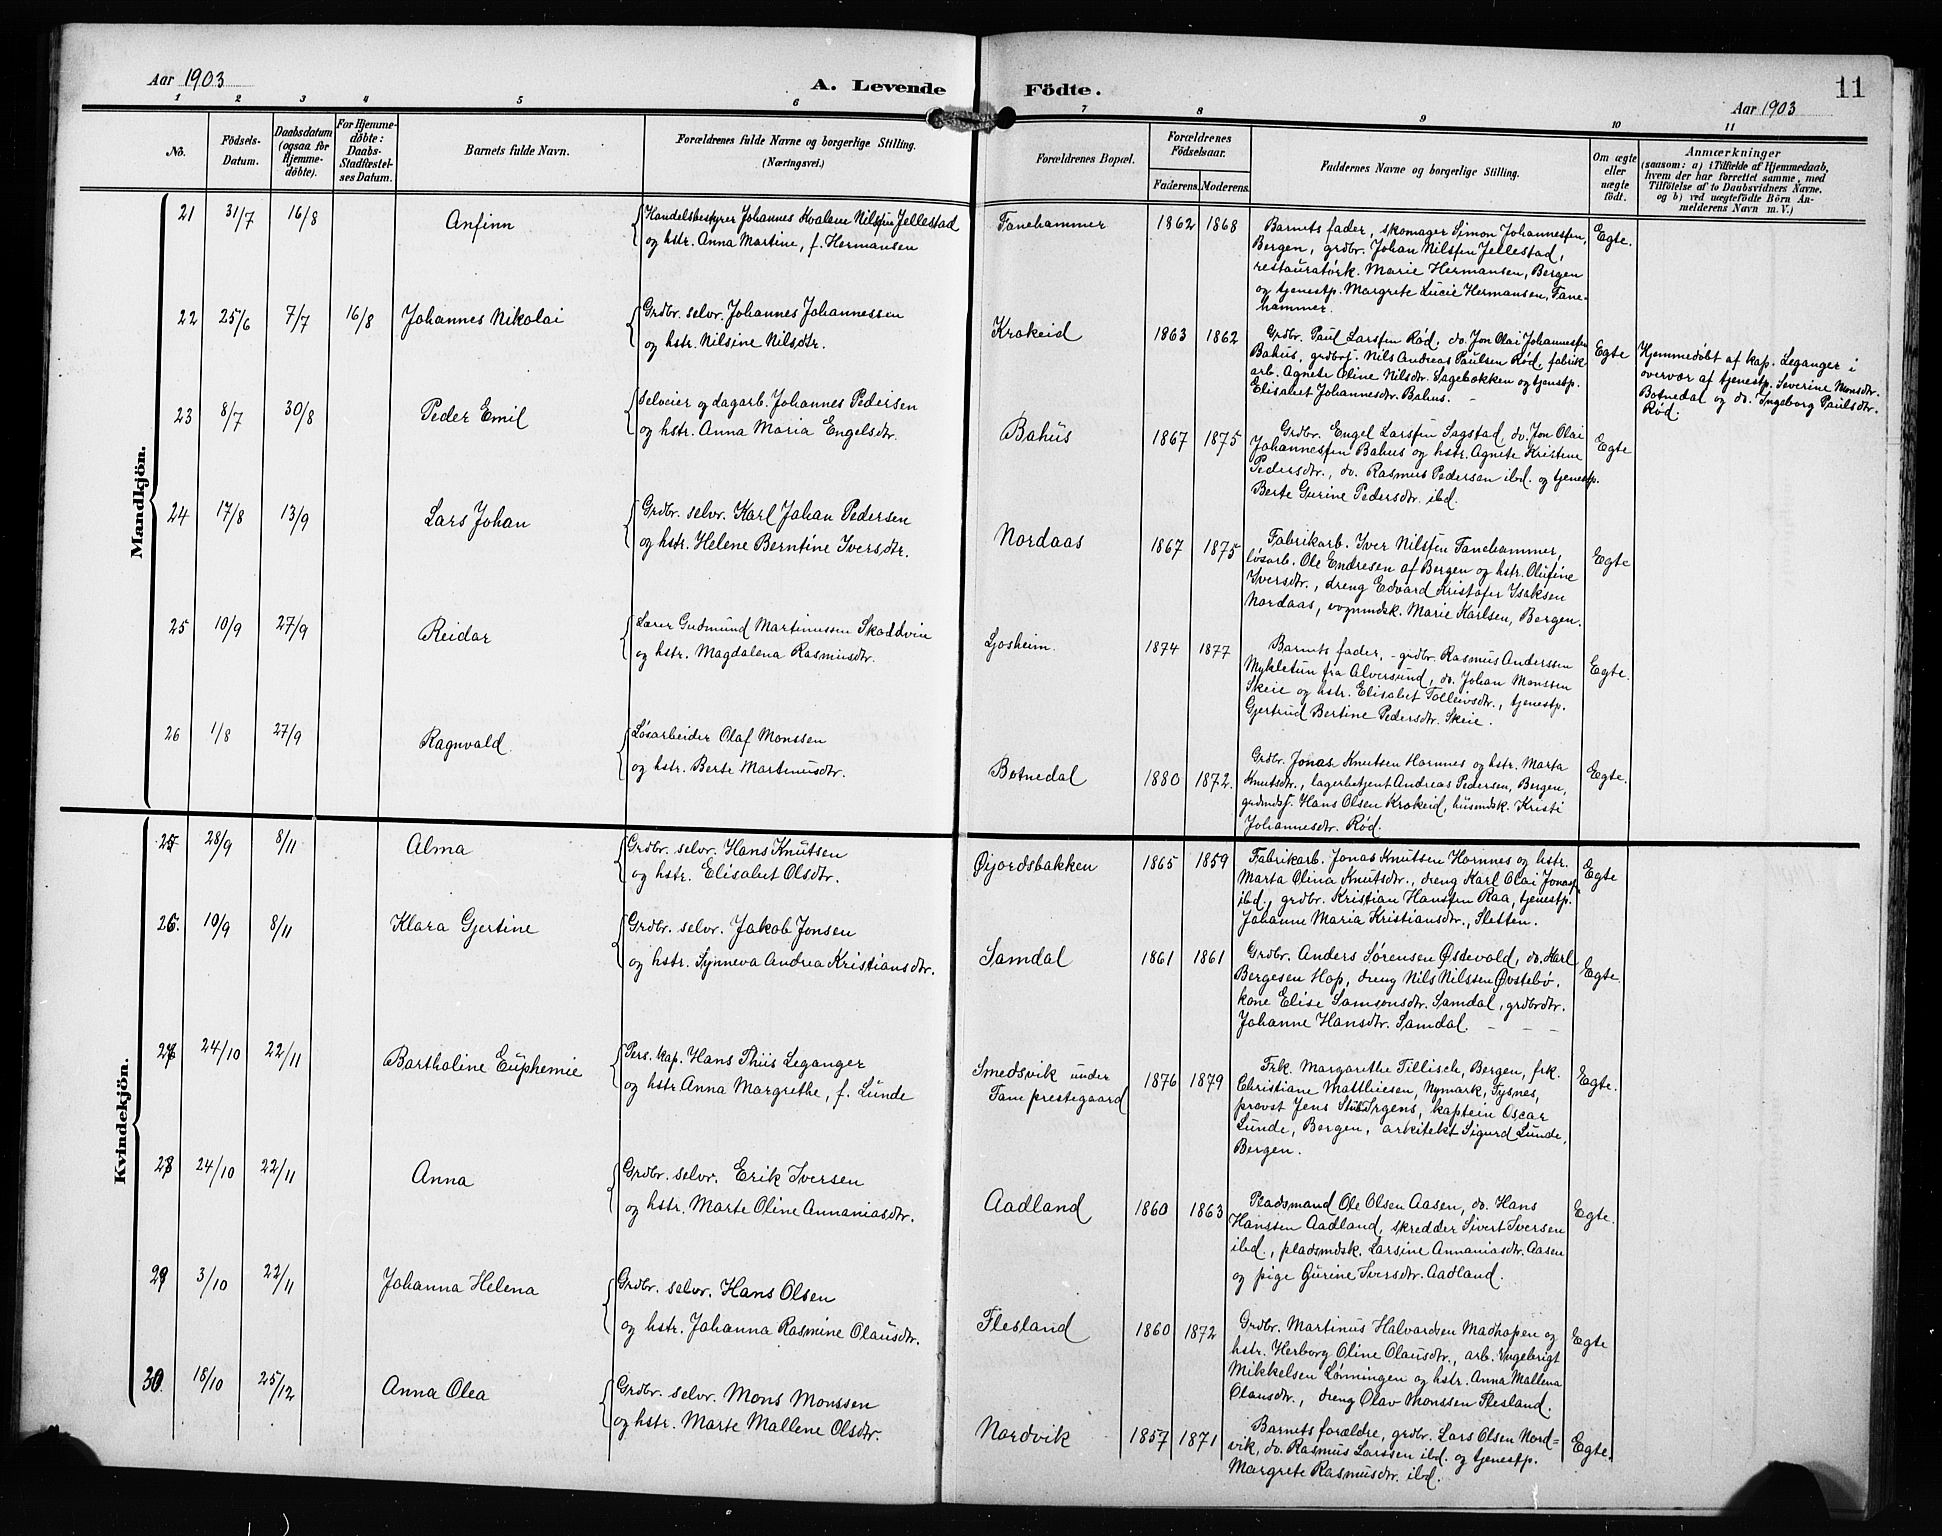 Aar 1903
A. Levende Födte.
11
Aar 1903
1 2 3 4 5 6 7 8 9 10 11
No.
Födsels-
Datum.
Daabsdatum
(ogsaa for
Hjemme-
döbte).
For Hjemme-
döbte:
Daabs-
Stadfæstel-
ses Datum.
Barnets fulde Navn.
Forældrenes fulde Navne og borgerlige Stilling.
(Næringsvei.)
Forældrenes Bopæl.
Forældrenes
Födselsaar.
Faderens. Moderens.
Faddernes Navne og borgerlige Stilling.
Om ægte
eller
uægte
födt.
Anmærkninger
(saasom: a) i Tilfælde af Hjemmedaab,
hvem der har forrettet samme, med
Tilföielse af to Daabsvidners Navne.
og b) ved uægtefödte Börn An-
melderens Navn m. V.)
Mandkjön.
21 31/7 16/8 Anfinn
Handelsbestyrer Johannes Kvalene Nilssen Jellestad
og hstr. Anna Martine, f. Hermansen
Fanehammer 1862 1868
Barnets fader, skomager Simon Johannessen,
Bergen, grdbr. Johan Nilssen Jellestad,
restauratørk. Marie Hermansen, Bergen
og tjenestp. Margrete Lucie Hermansen, Fane-
hammer.
Egte.
22 25/6 7/7 16/8 Johannes Nikolai
Grdbr. selvr. Johannes Johannessen
og hstr. Nilsine Nilsdtr.
Krokeid 1863 1862
Grdbr. Paul Larssen Rød, do. Jon Olai Johannessen
Bahus, grdbrs. Nils Andreas Paulsen Rød, fabrik
arb. Agnete Oline Nilsdtr. Sagebakken og tjenestp.
Elisabet Johannesdtr. Bahus.
Egte
Hjemmedøbt af kap. Leganger i
overvær af tjenestp. Severine Monsdtr.
Botnedal og do. Ingeborg Paulsdtr.
Rød.
23 8/7 30/8 Peder Emil
Selveier og dagarb. Johannes Pedersen
og hstr. Anna Maria Engelsdtr.
Bahus 1867 1875
Grdbr. Engel Larssen Sagstad, do. Jon Olai
Johannessen Bahus og hstr. Agnete Kristine
Pedersdtr., do. Rasmus Pedersen ibd. og tjenestp.
Berte Gurine Pedersdtr. ibd.
Egte
24 17/8 13/9 Lars Johan
Grdbr. selvr. Karl Johan Pedersen
og hstr. Helene Berntine Iversdtr.
Nordaas 1867 1875
Fabrikarb. Iver Nilssen Fanehammer,
løsarb. Ole Endresen af Bergen og hstr. Olufine
Iversdtr., dreng Edvard Kristofer Isaksen
Nordaas, vognmdsk. Marie Karlsen, Bergen.
Egte
25 10/9 27/9 Reidar
Lærer Gudmund Martinussen Skaddvin
og hstr. Magdalena Rasmusdtr.
Ljosheim. 1874 1877
Barnets fader, grdbr. Rasmus Anderssen
Mykletun fra Alversund, do. Johan Monssen
Skeie og hstr. Elisabet Tolleivsdtr., tjenestp.
Gjertrud Bertine Pedersdtr. Skeie.
Egte.
26 1/8 27/9 Ragnvald.
Løsarbeider Olaf Monssen
og hstr. Berte Martinusdtr.
Botnedal 1880 1872
Grdbr. Jonas Knutsen Hornnes og hstr. Marta
Knutsdtr., lagerbetjent Andreas Pedersen, Bergen,
grdmds. Hans Olsen Krokeid, husmdsk. Kristi
Johannesdtr. Rød.
Egte.
Kvindekjön.
25 28/9 8/11 Alma
Grdbr. selvr. Hans Knutsen
og hstr. Elisabet Olsdtr.
Øijordsbakken 1865 1859
Fabrikarb. Jonas Knutsen Hornnes og hstr.
Marta Olina Knutsdtr., dreng Karl Olai Jonass.
ibd., grdbr. Kristian Hanssen Raa, tjenestp.
Johanne Maria Kristiansdtr., Sletten.
Egte
26. 19/9 8/11 Klara Gjertine
Grdbr. selvr. Jakob Jonsen
og hstr. Synneva Andrea Kristiansdtr.
Samdal 1861 1861
Grdbr. Anders Sørensen Østevold, do. Karl
Bergesen Hop, dreng Nils Nilssen Øvstebø.
kone Elise Samsonsdtr. Samdal, grdbrdtr.
Johanne Hansdtr. Samdal.
Egte.
27 24/10 22/11 Bartholine Euphemie
Pers. kap. Hans Thiis Leganger
og hstr. Anna Margrethe, f. Lunde
Smedsvik under
Fane prestegaard
1876 1879
Frk. Margarethe Tillisch, Bergen, frk.
Christiane Matthiesen, Nymark, Tysnes,
provst Jens Stub Irgens, kaptein Oscar
Lunde, Bergen, arkitekt Sigurd Lunde,
Bergen.
Egte.
28 24/10 22/11 Anna
Grdbr. selvr. Erik Iversen
og hstr. Marte Oline Annaniasdtr.
Aadland 1860 1863
Pladsmand Ole Olsen Aasen, do. Hans
Hanssen Aadland, skredder Sivert Iversen
ibd., pladsmdsk. Larsine Annaniasdtr. Aasen
og pige Gurine Iversdtr. Aadland.
Egte.
29 3/10 22/11 Johanna Helena
Grdbr. selvr. Hans Olsen
og hstr. Johanna Rasmine Olausdtr.
Flesland 1860 1872
Grdbr. Martinus Halvardsen Madhapen og
hstr. Herborg Oline Olausdtr., arb. Ingebrigt
Mikkelsen Lønningen og hstr. Anna Mallena
Olausdtr., dreng Olav Monssen Flesland.
Egte
30. 18/10 25/12 Anna Olea
Grdbr. selvr. Mons Monssen
og hstr. Marte Mallene Olsdtr.
Nordvik 1857 1871
Barnets forældre, grdbr. Lars Olsen Nord-
vik, do. Rasmus Larssen ibd. og tjenestp.
Margrete Rasmusdtr. ibd.
Egte.